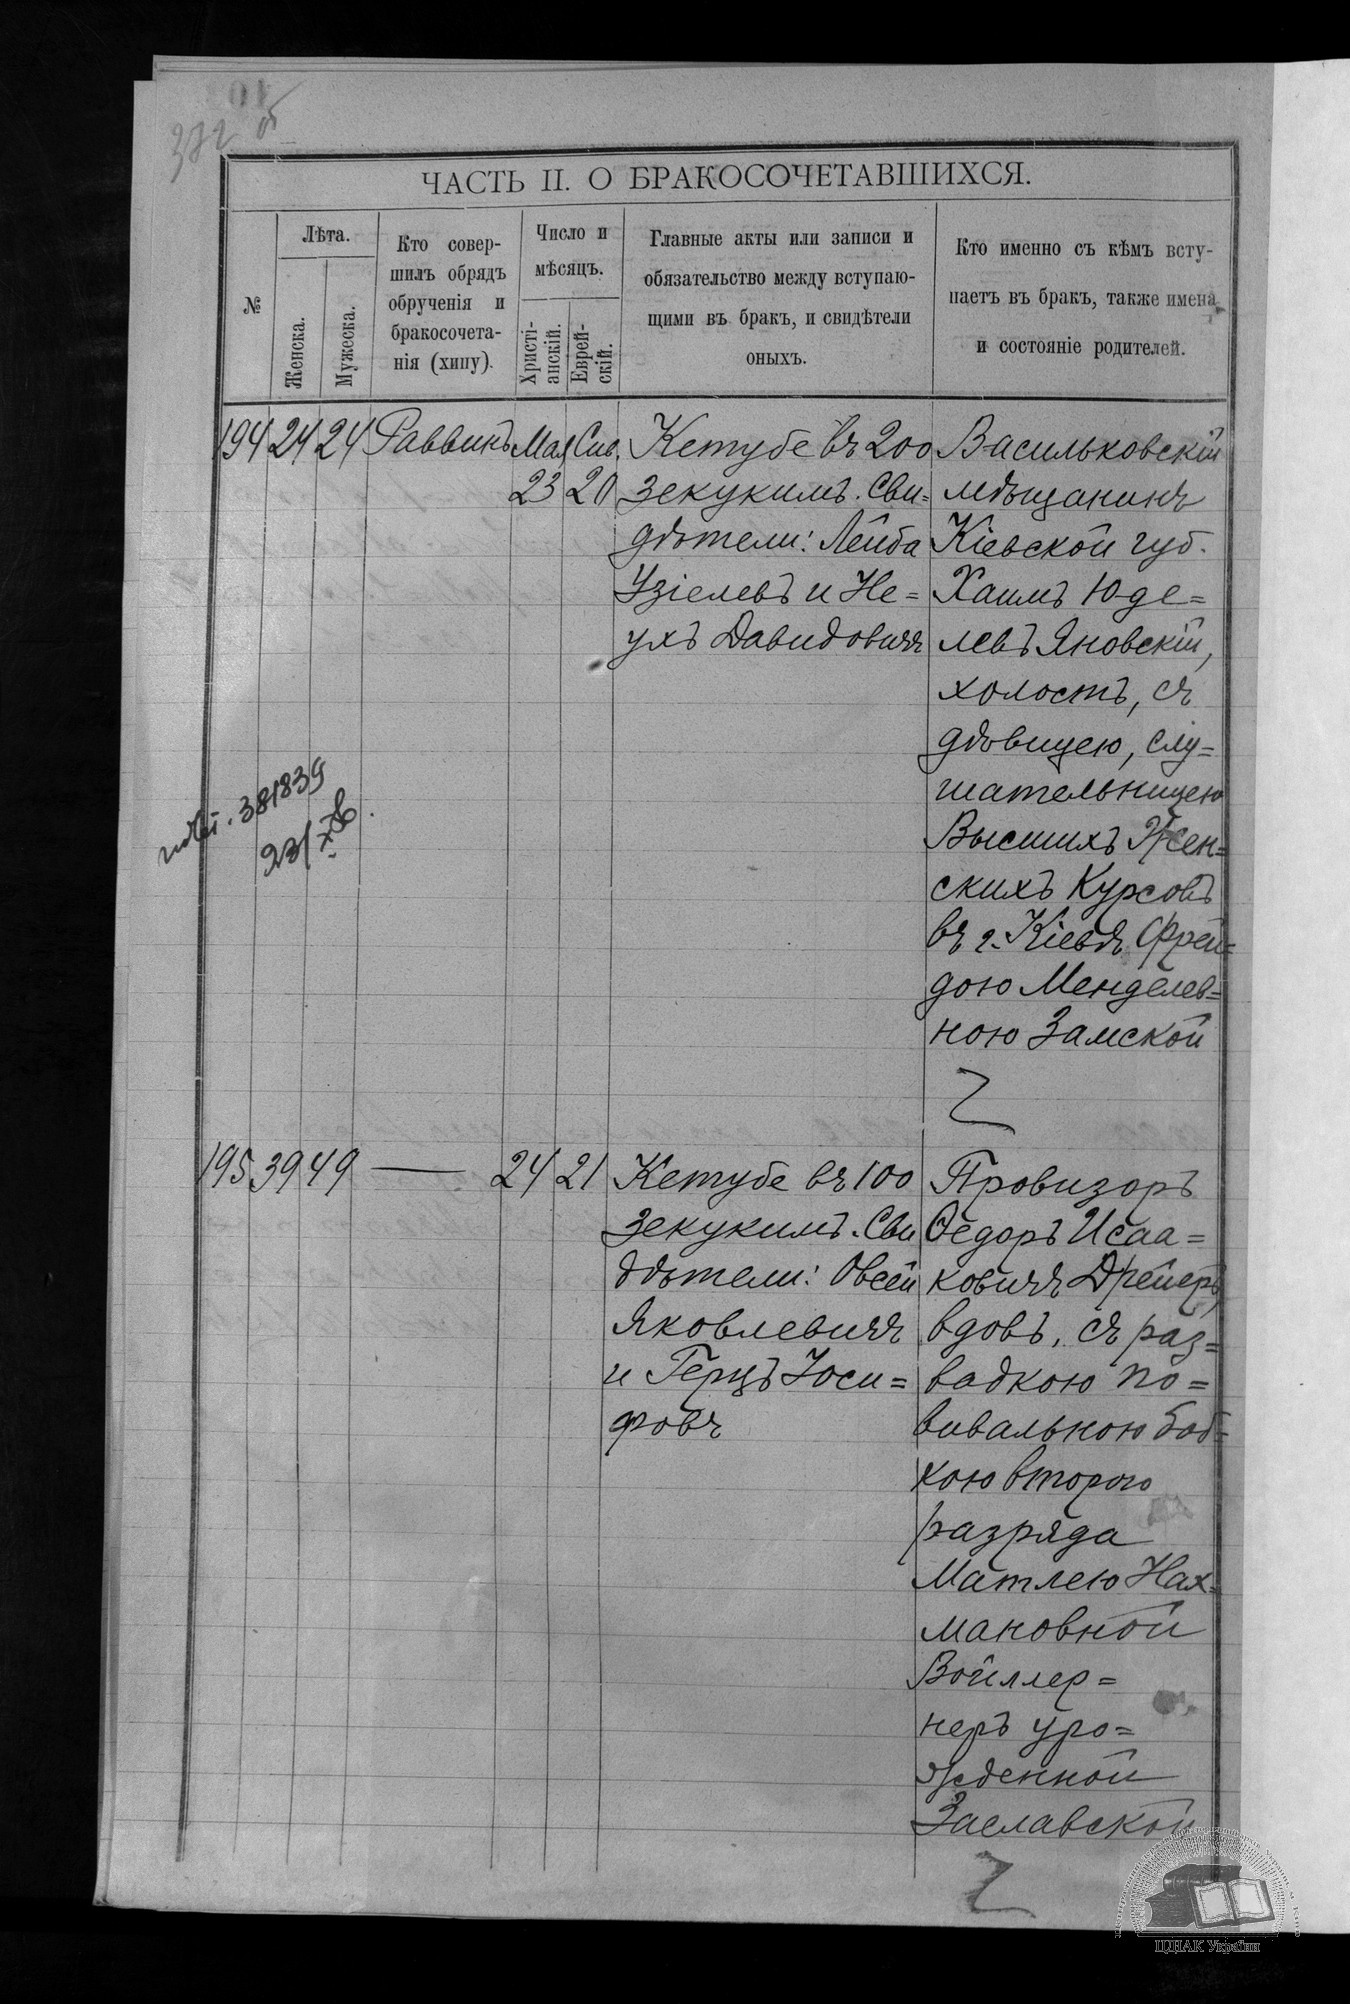 372 об
ЧАСТЬ II. О БРАКОСОЧЕТАВШИХСЯ.
№
Лѣта.
Женска.
Мужеска.
Кто совер-
шилъ обрядъ
обрученія и
бракосочета-
нія (хипу).
Число и
мѣсяцъ.
Христі-
анскій.
Еврей-
скій.
Главные акты или записи и
обязательство между вступаю-
щими въ бракъ, и свидѣтели
оныхъ.
Кто именно съ кѣмъ всту-
паетъ въ бракъ, также имена
и состояніе родителей.
194 24 24 Раввинъ Мая Сив.
23 20
Кетубе въ 200
зекукимъ. Сви=
дѣтели: Лейба
Узіелевъ и Не=
ухъ Давидовичъ
Васильковскій
мѣщанинъ
Кіевской губ.
Хаимъ Юде=
левъ Яновскій,
холостъ, съ
дѣвицею, слу=
шательницею
Высшихъ Жен=
скихъ Курсовъ
въ г. Кіевѣ Фрей=
дою Менделев=
ною Замской
381839
23/X
195 39 49 — 24 21
Кетубе въ 100
зекукимъ. Сви
дѣтели: Овсей
Яковлевичъ
и Герцъ Іоси=
фовъ
Провизоръ
Ѳедоръ Исаа=
ковичъ Дрейеръ,
вдовъ, съ раз=
водкою по=
вивальною баб=
кою второго
разряда
Матлею Нах=
мановной
Войллер=
неръ уро=
жденной
Заславской
ЦДІАК України